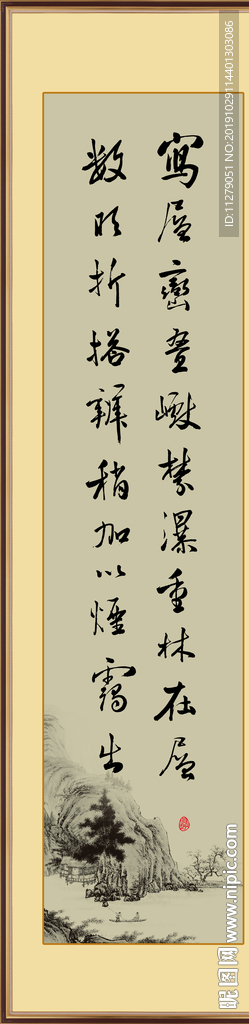 寫層巒疊巘瀑重林在層
數折搭稍加以煙靄出
ID:11279051 NO:20191029114401303086
昵图网 www.nipic.com